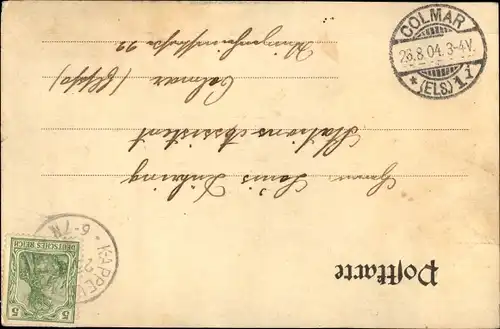 Postkarte
Herrn Louis Kühring
Stations Assistent
Colmar (Elsass)
22
COLMAR
26.8.04.3-4V.
* (ELS.) 1 i
KAPPEL
6-7N.
DEUTSCHES REICH
5 5